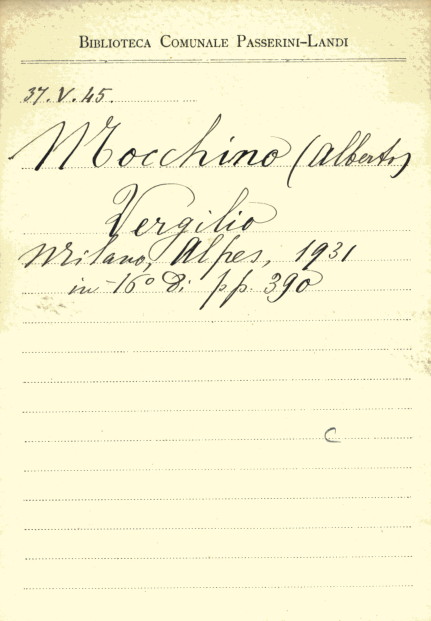 BIBLIOTECA COMUNALE PASSERINI-LANDI
37.V.45.
Mocchino (Alberto)
Vergilio
Milano, Alpes, 1931
in-16° di pp. 390
C